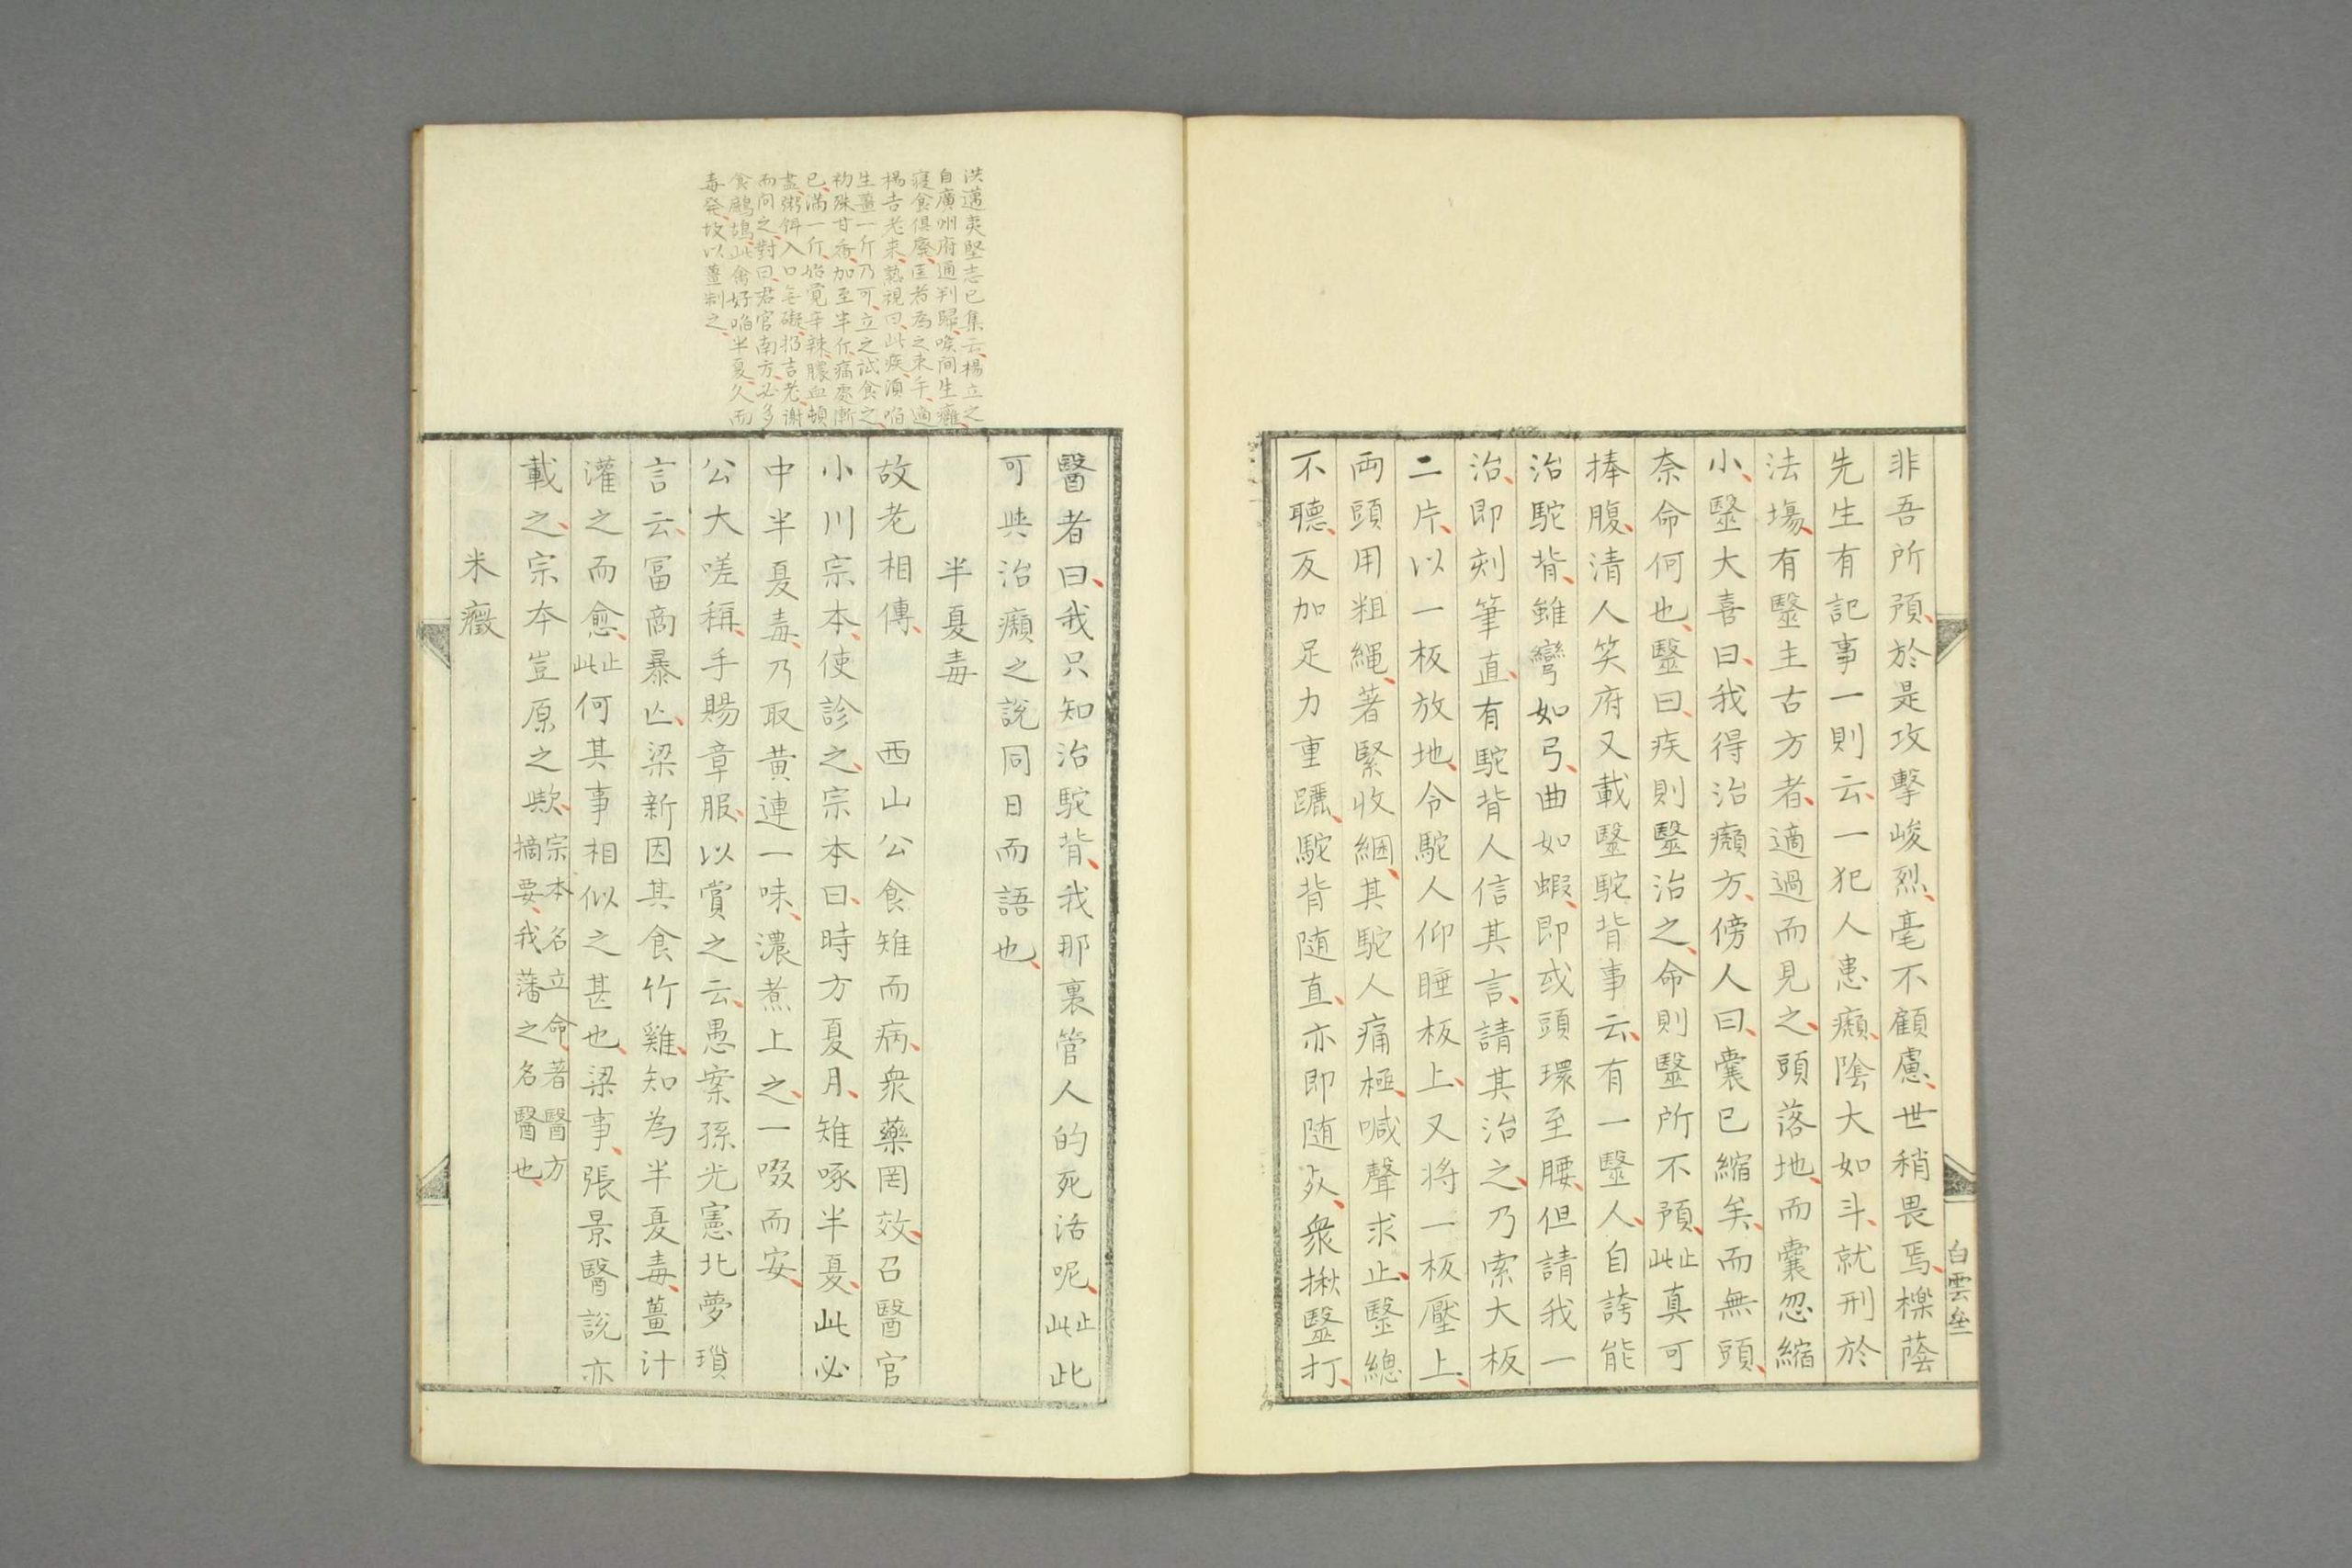 非吾所預、於是攻擊峻烈、毫不顧慮、世稍畏焉、櫟蔭
先生有記事一則云、一犯人患癩、陰大如斗、就刑於
法場、有毉主古方者、適過而見之、頭落地、而囊忽縮
小、毉大喜曰、我得治癩方、傍人曰、囊已縮矣、而無頭、
奈命何也、毉曰、疾則毉治之、命則毉所不預、此止真可
捧腹、清人笑府又載毉駝背事云、有一毉人、自誇能
治駝背、雖彎如弓、曲如蝦、即或頭環至腰、但請我一
治、即刻筆直、有駝背人信其言、請其治之、乃索大板
二片、以一板放地、令駝人仰睡板上、又将一板壓上、
両頭用粗繩、著緊收綑、其駝人痛極、喊聲求止、毉總
不聽、反加足力重躧、駝背随直、亦即随死、衆揪毉打、
白雲壘
醫者曰、我只知治駝背、我那裏管人的死活呢、此止此
可與治癩之說同日而語也、
半夏毒
故老相傳、　西山公食雉而病、衆藥罔效、召醫官
小川宗本、使診之、宗本曰、時方夏月、雉啄半夏、此必
中半夏毒、乃取黄連一味、濃煮上之、一啜而安、
公大嗟稱、手賜章服、以賞之云、愚案孫光憲北夢瑣
言云、冨商暴亡、梁新因其食竹雞、知為半夏毒、薑汁
灌之而愈、此止何其事相似之甚也、梁事、張景醫說亦
載之、宗本豈原之歟、宗本名立命、著醫方摘要、我藩之名醫也、
米癥
洪邁夷堅志已集云、楊立之
自廣州府通判歸、喉間生癰、
寝食俱廢、医者為之束手、適
楊吉老来、熟視曰、此疾須啗
生薑一斤乃可、立之試食之、
初殊甘香、加至半斤、痛處漸
已、満一斤、始覚辛辣、膿血頓
盡、粥餌入口無礙、招吉老謝
而問之、對曰、君官南方、必多
食鷓鴣、此禽好啗半夏、久而
毒發、故以薑制之、